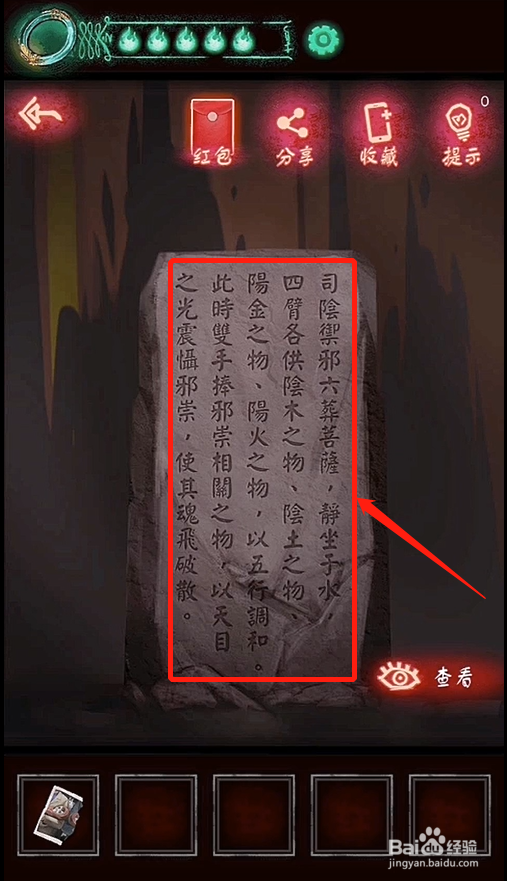 0
红包
分享
收藏
提示
司陰禦邪六葬菩薩，靜坐于水，
四臂各供陰木之物、陰土之物、
陽金之物、陽火之物，以五行調和。
此時雙手捧邪祟相關之物，以天目
之光震懾邪祟，使其魂飛破散。
查看
Baidu经验
jingyan.baidu.com